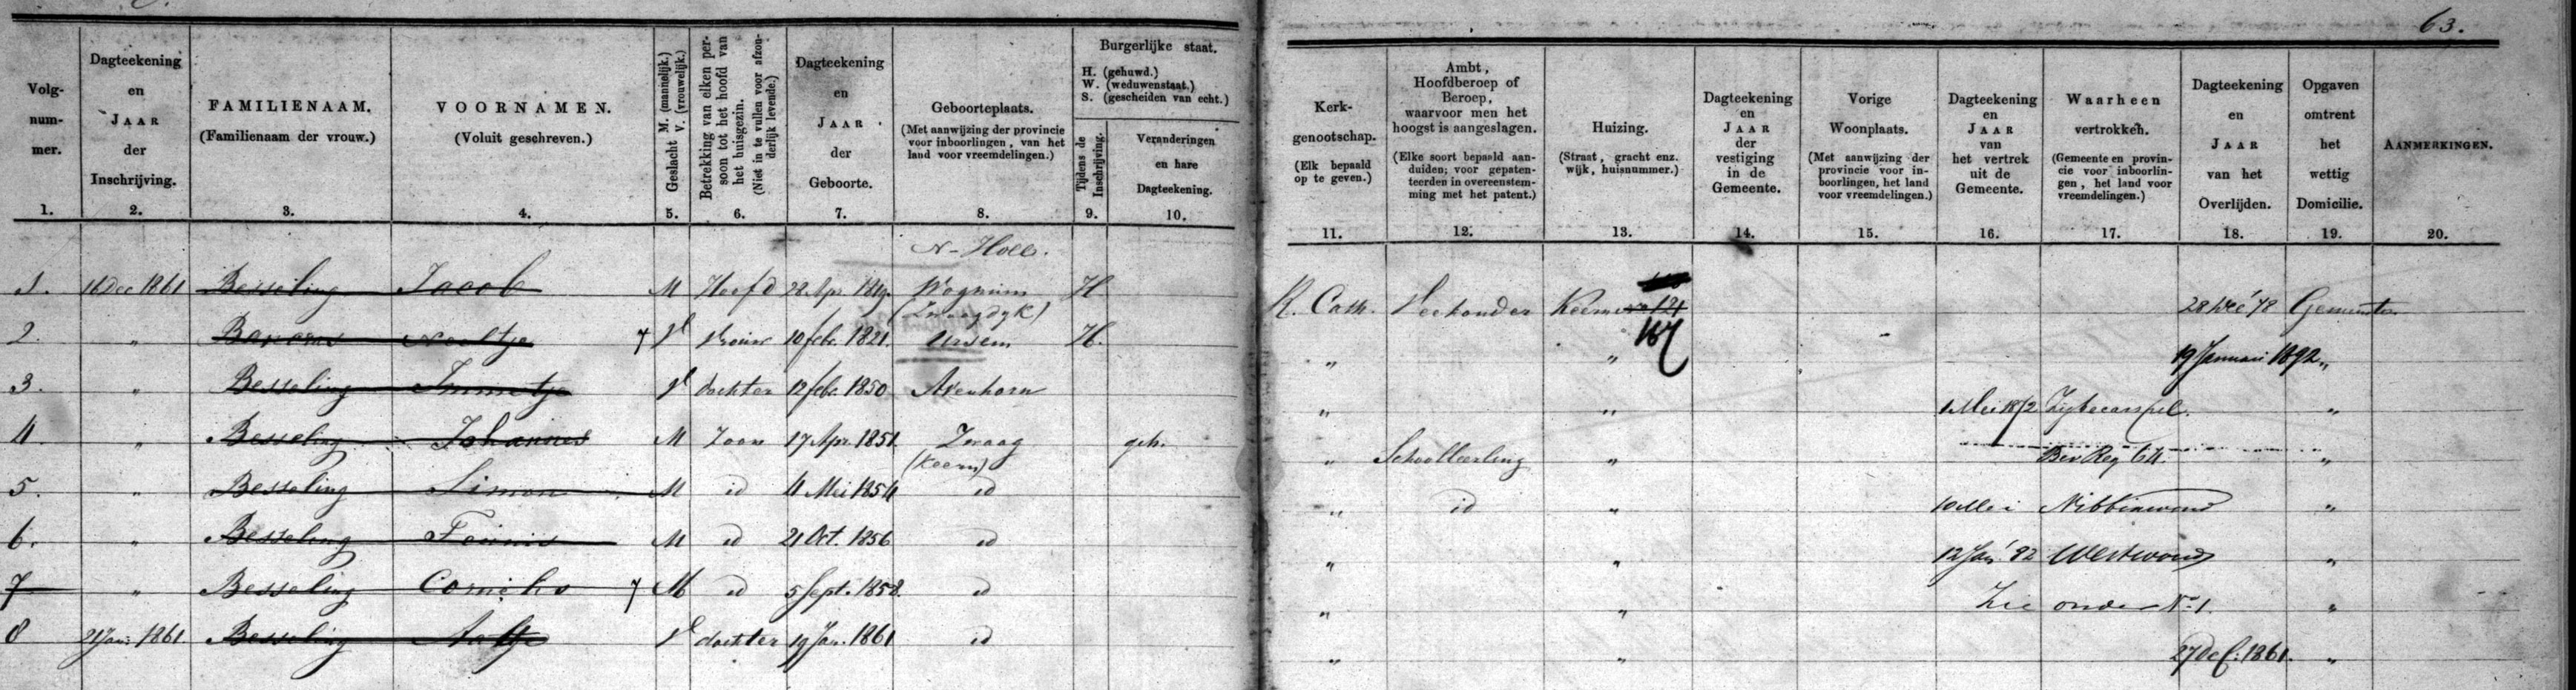 63.
Volg-
num-
mer.
1.
Dagteekening
en
JAAR
der
Inschrijving.
2.
FAMILIENAAM.
(Familienaam der vrouw.)
3.
VOORNAMEN.
(Voluit geschreven.)
4.
Geslacht M. (mannelijk.)
V. (vrouwelijk.)
5.
Betrekking van elken per-
soon tot het hoofd van
het huisgezin.
(Niet in te vullen voor afzon-
derlijk levende.)
6.
Dagteekening
en
JAAR
der
Geboorte.
7.
Geboorteplaats.
(Met aanwijzing der provincie
voor inboorlingen, van het
land voor vreemdelingen.)
8.
Burgerlijke staat.
H. (gehuwd.)
W. (weduwenstaat.)
S. (gescheiden van echt.)
Tijdens de
Inschrijving.
9.
Veranderingen
en hare
Dagteekening.
10.
Kerk-
genootschap.
(Elk bepaald
op te geven.)
11.
Ambt,
Hoofdberoep of
Beroep,
waarvoor men het
hoogst is aangeslagen.
(Elke soort bepaald aan-
duiden; voor gepaten-
teerden in overeenstem-
ming met het patent.)
12.
Huizing.
(Straat, gracht enz.
wijk, huisnummer.)
13.
Dagteekening
en
JAAR
der
vestiging
in de
Gemeente.
14.
Vorige
Woonplaats.
(Met aanwijzing der
provincie voor in-
boorlingen, het land
voor vreemdelingen.)
15.
Dagteekening
en
JAAR
van
het vertrek
uit de
Gemeente.
16.
Waarheen
vertrokken.
(Gemeente en provin-
cie voor inboorlin-
gen, het land voor
vreemdelingen.)
17.
Dagteekening
en
JAAR
van het
Overlijden.
18.
Opgaven
omtrent
het
wettig
Domicilie.
19.
AANMERKINGEN.
20.
N-Holl.
1. 16 Dec 1861 Besseling Jacob M Hoofd 28 Apr. 1819. Wognum H. R. Cath. Veehouder Keern 121 28 Dec '78 Gemeente
(Zwaagdyk)
2. " Neeltje V Vrouw 10 febr. 1821. Ursem H. " " 167 19 Januari 1892 "
3. " Besseling Immetje V dochter 12 febr. 1850 Avenhorn " " 1 Mei 1872 Zybecarspel. "
4. " Besseling Johannes M Zoon 17 Apr. 1851. Zwaag geh. " Schoolleerling " Bev Reg 64. "
(Keern)
5. " Besseling Simon M id 4 Mei 1854 id " id " 10 Mei Nibbixwoud "
6. " Besseling Teunis M id 21 Oct. 1856 id " " 12 Jan '82 Westwoud "
7 " Besseling Cornelis M id 5 Sept. 1858. id " " Zie onder No 1. "
8 21 Jan. 1861. Besseling Aaltje V dochter 19 Jan. 1861 id " " 27 Dec. 1861. "